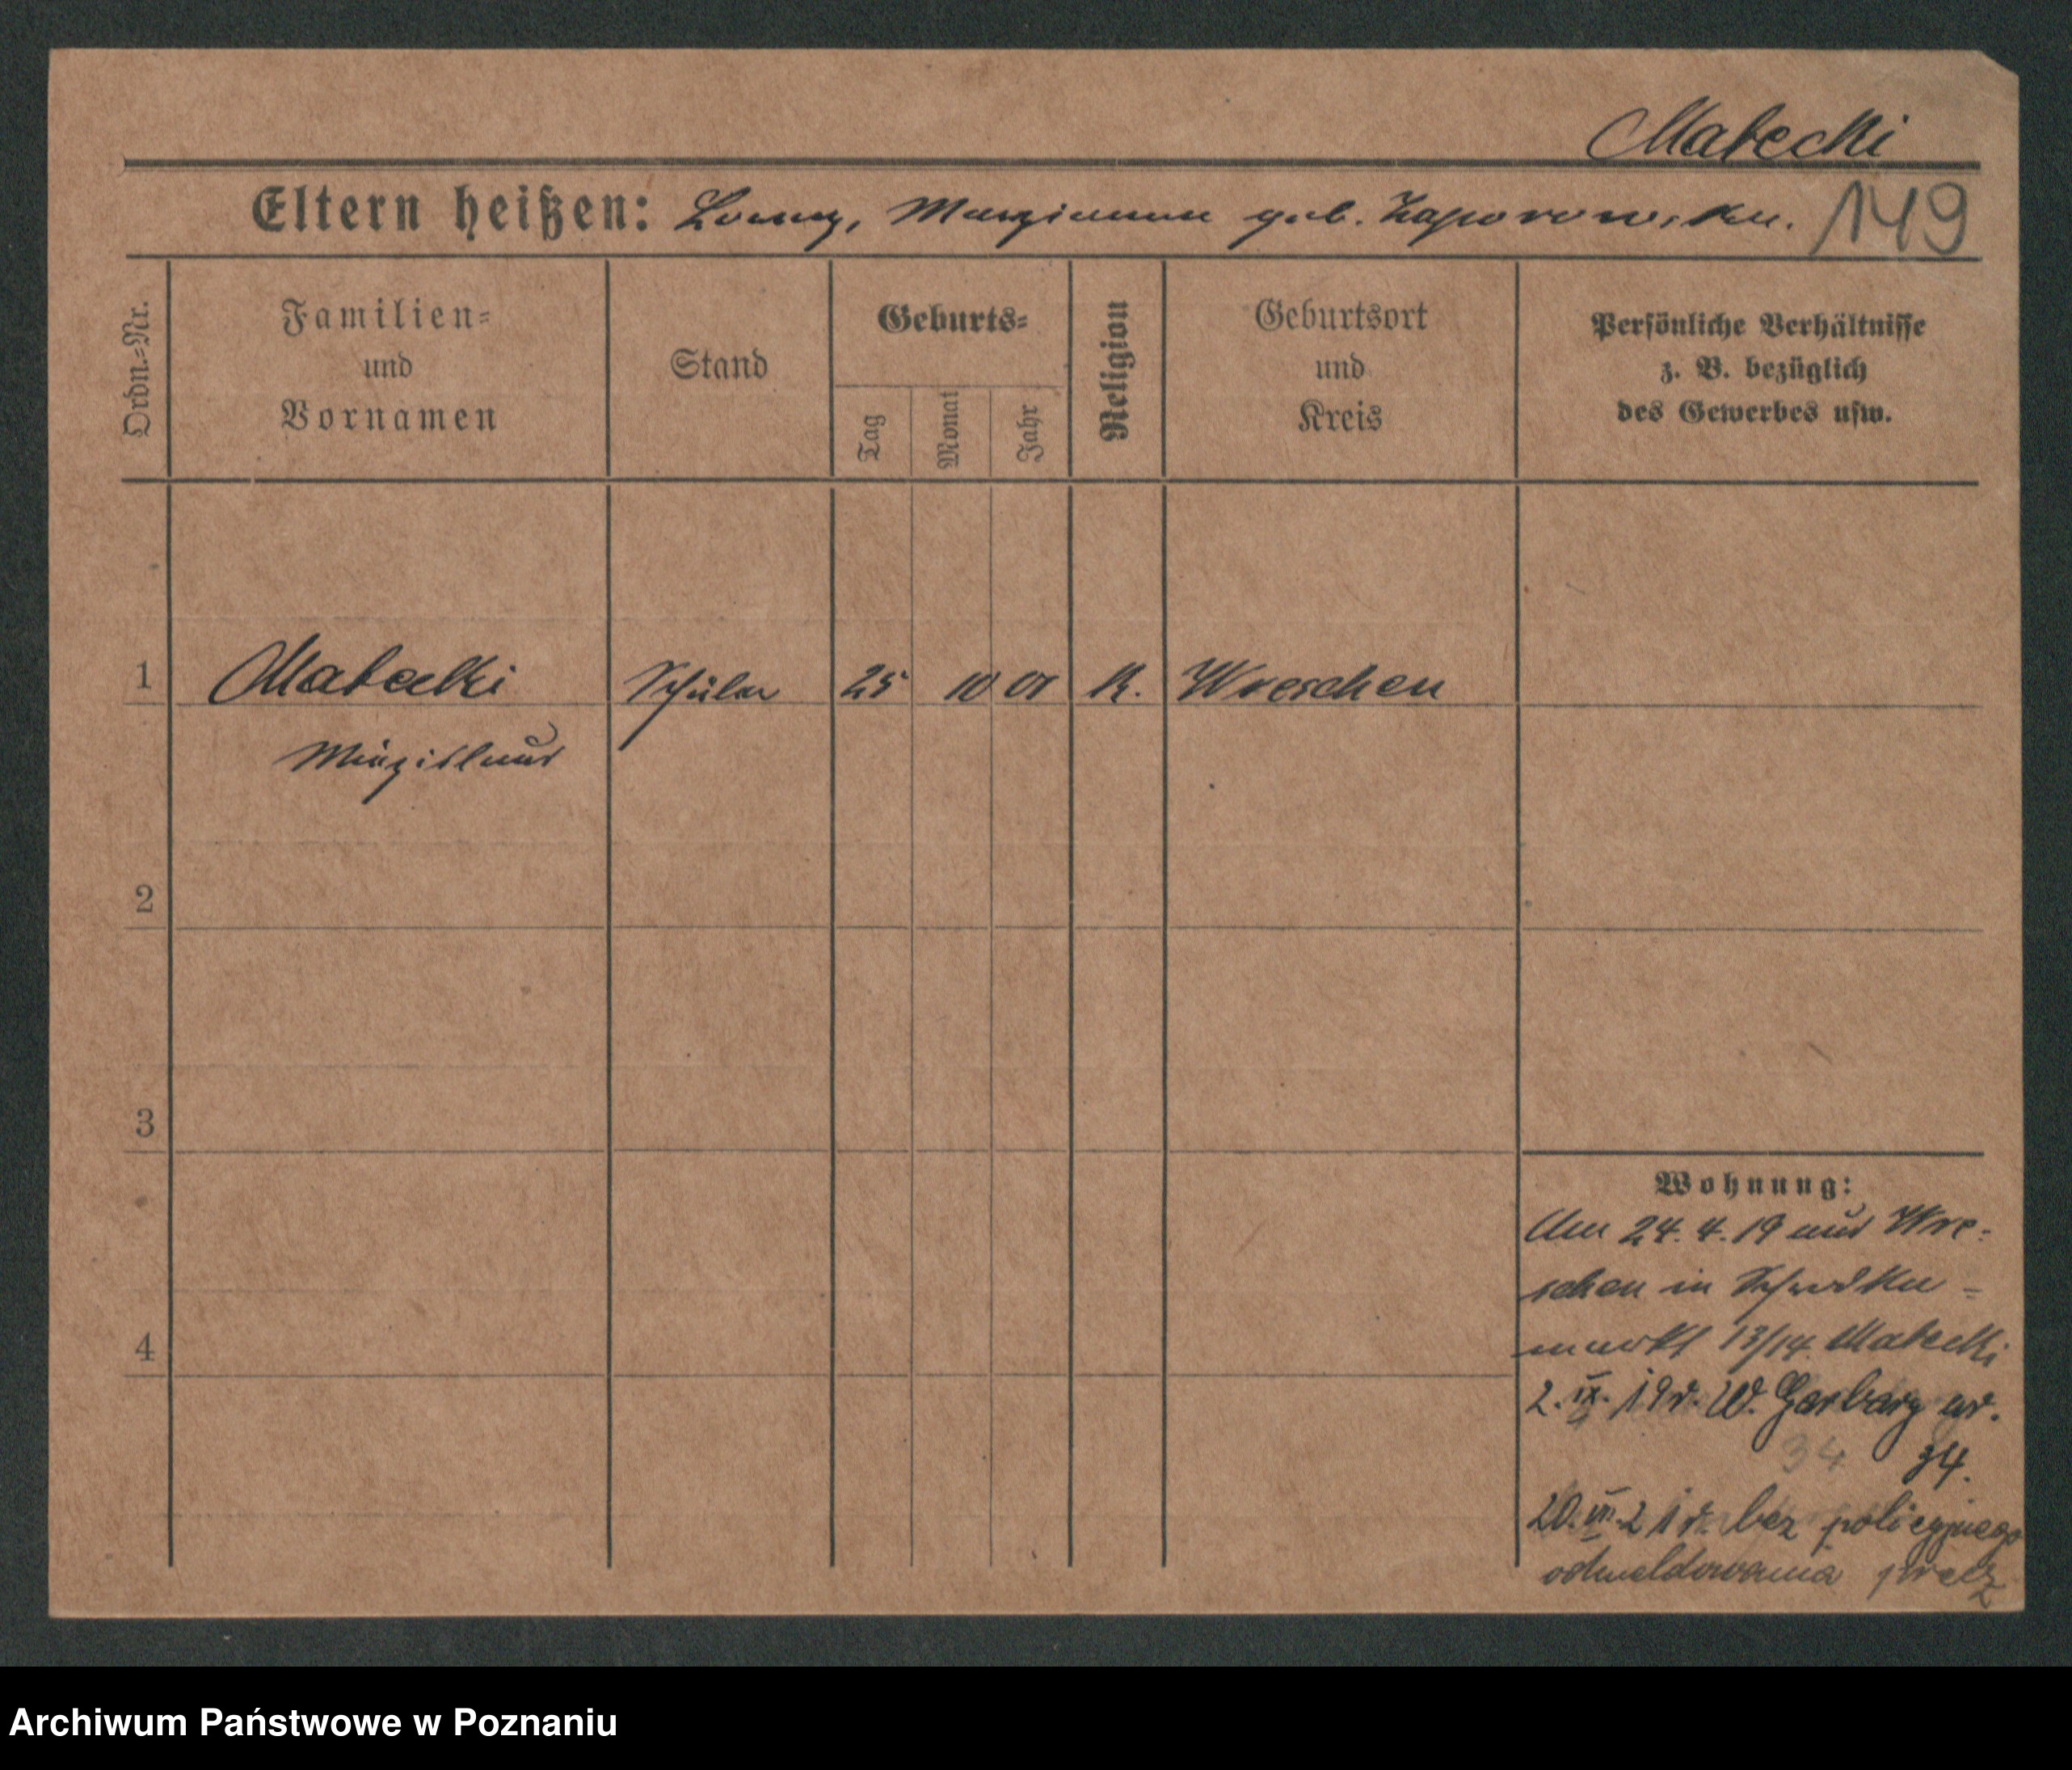 Małecki
Eltern heißen: Marzianna geb. Zaporowska.
149
Ordn.=Nr.
Familien=
und
Vornamen
Stand
Geburts=
Tag
Monat
Jahr
Religion
Geburtsort
und
Kreis
Persönliche Verhältnisse
z. B. bezüglich
des Gewerbes usw.
1 Małecki Schüler 25 10 01 K. Wreschen
2
3
4
Wohnung:
Am 24.4.19 aus Wre-
schen in
markt 13/14. Małecki
2.IX.19r. W. Garbary nr.
34
34.
20. 21 r. bez policyjnego
odmeldowania
Archiwum Państwowe w Poznaniu